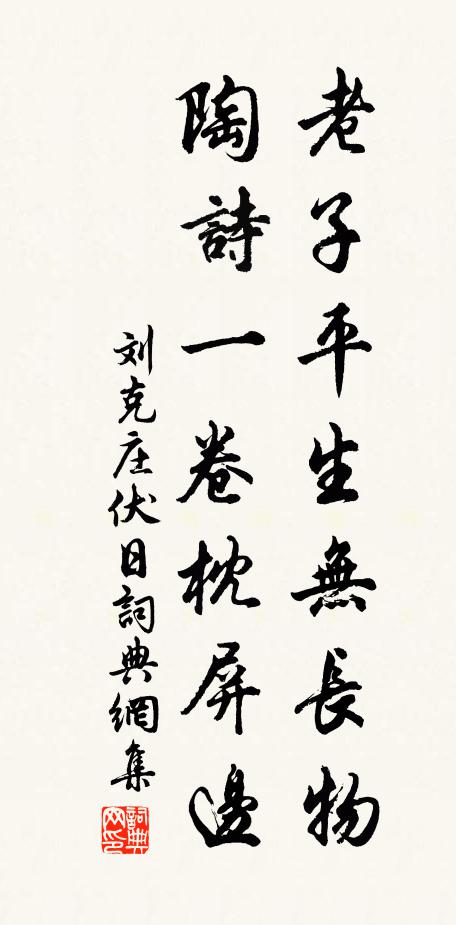 老子平生無長物
陶詩一卷枕屏邊
刘克庄伏日詞典網集
詞典网印